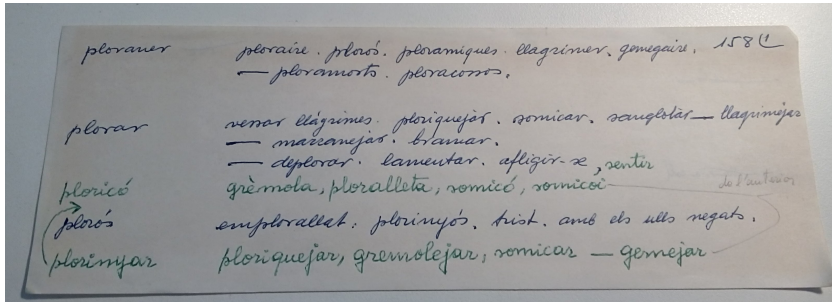 ploraner ploraire. plorós. ploramiques. llagrimer. gemegaire. 158
— ploramorts. ploracossos.
plorar vessar llàgrimes. ploriquejar. somicar. sanglotar — llagrimejar
— marranejar. bramar.
— deplorar. lamentar. afligir-se, sentir
ploricó grèmola, ploralleta, somicó, somicoi
plorós emplorallat. plorinyós. trist. amb els ulls negats.
plorinyar ploriquejar, gremolejar, somicar — gemejar